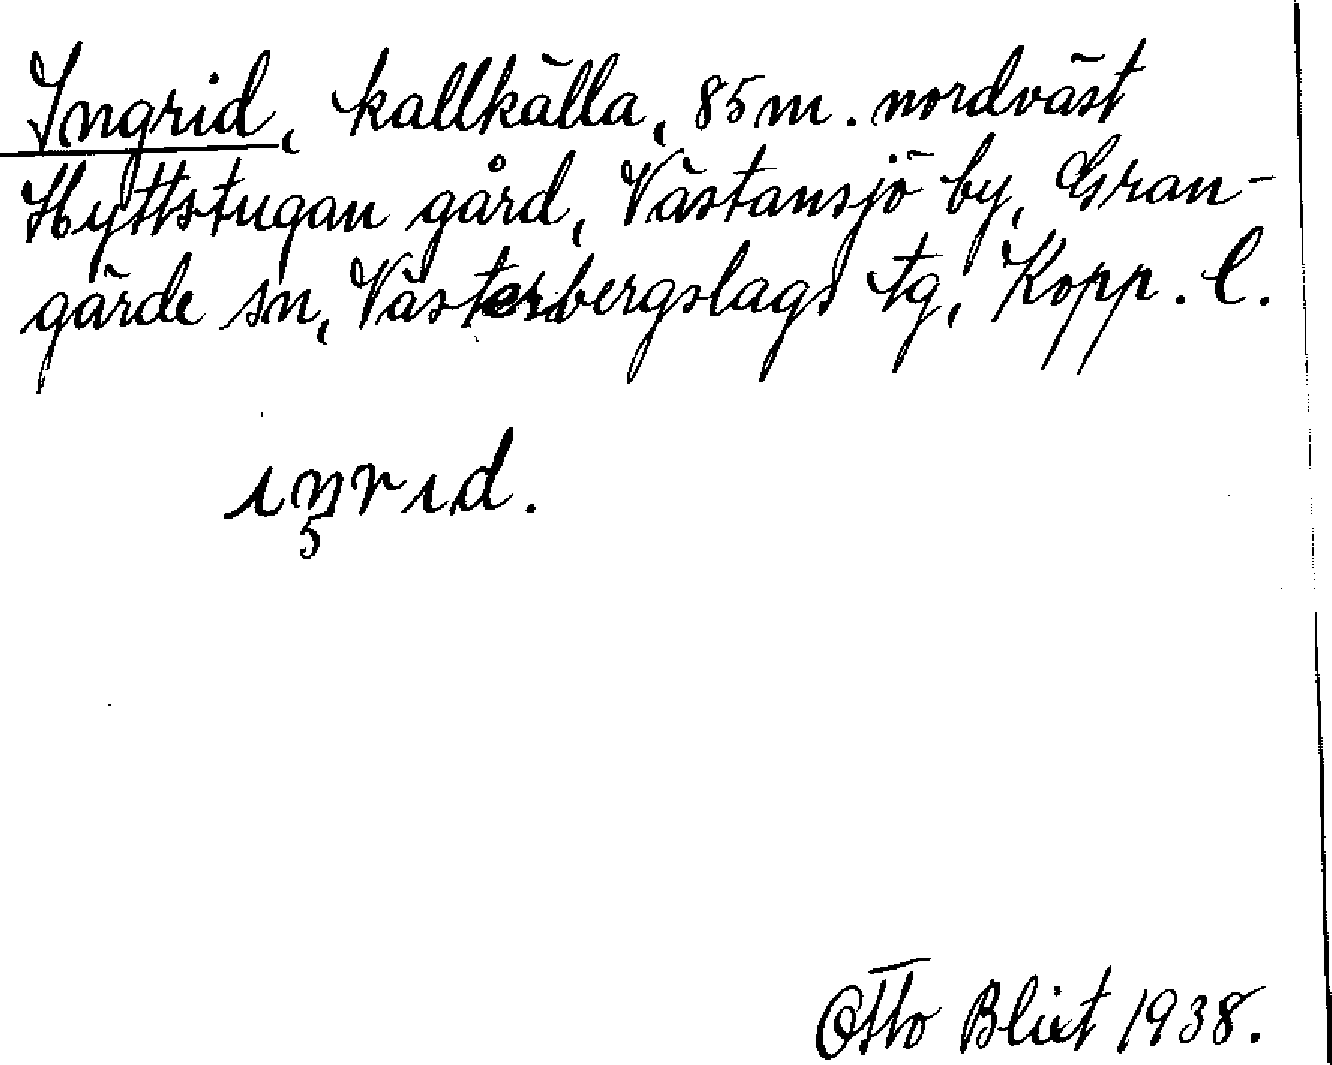 Ingrid, kallkälla, 85 m. nordväst
Hyttstugan gård, Västansjö by, Gran-
gärde sn, Västerbergslags tg, Kopp. l.
ıŋrıd.
Otto Blixt 1938.